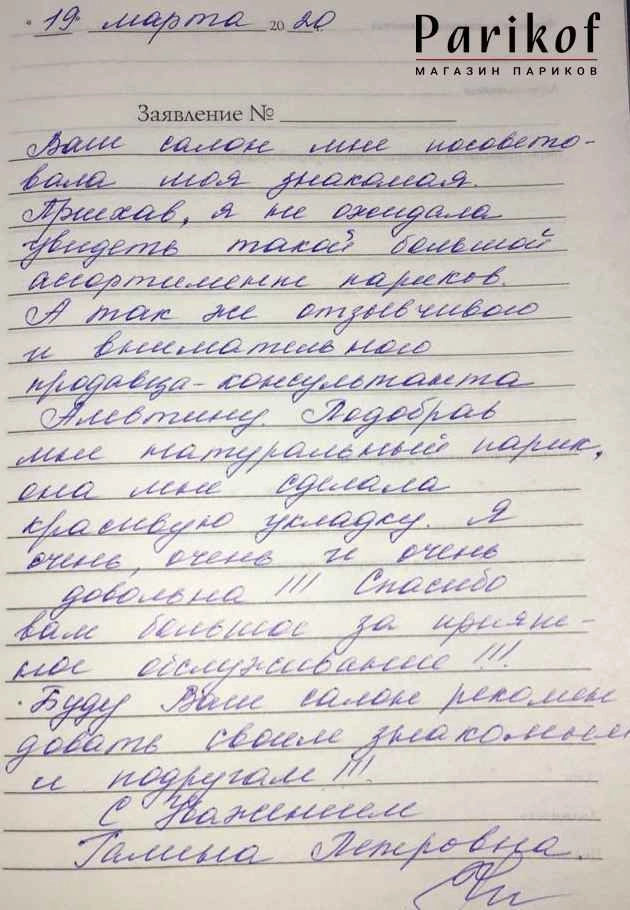 "19" марта 2020 г.
Parikof
МАГАЗИН ПАРИКОВ
Заявление №
Ваш салон мне посовето-
вала моя знакомая.
Приехав, я не ожидала
увидеть такой большой
ассортимент париков.
А так же отзывчивого
и внимательного
продавца-консультанта
Алевтину. Подобрав
мне натуральный парик,
она мне сделала
красивую укладку. Я
очень, очень и очень
довольна!!! Спасибо
вам большое за прият-
ное обслуживание!!!
Буду Ваш салон рекомен
довать своим знакомым
и подругам!!!
С Уважением
Галина Петровна.